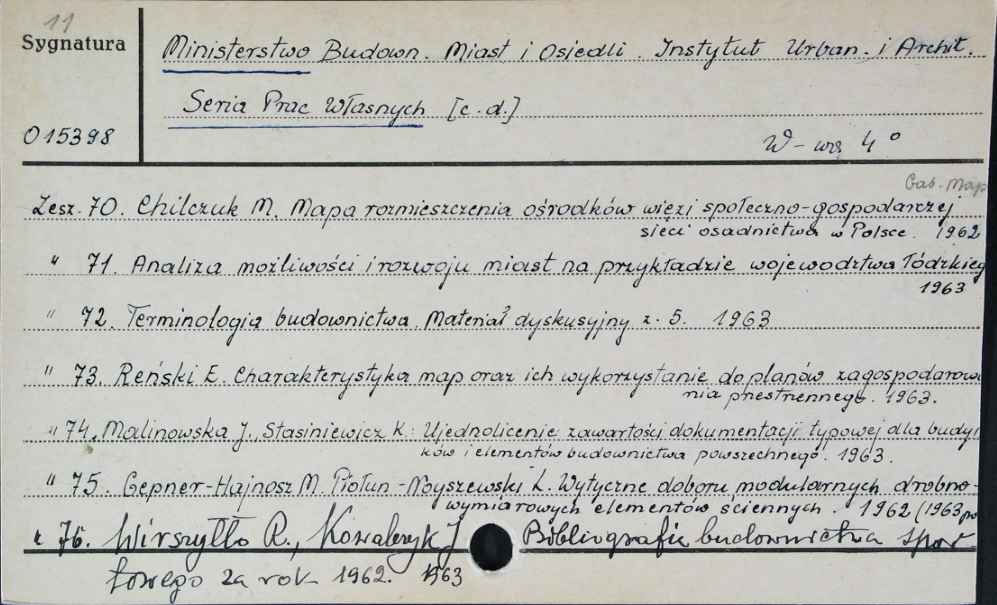 11
Sygnatura
Ministerstwo Budown. Miast i Osiedli. Instytut Urban. i Archit.
Seria Prac Własnych [c.d.]
015398
W-wa 4°
Gab. Map
Zesz. 70. Chilczuk M. Mapa rozmieszczenia ośrodków więzi społeczno-gospodarczej
sieci osadnictwa w Polsce. 1962
" 71. Analiza możliwości i rozwoju miast na przykładzie województwa Łódzkieg
1963
" 72. Terminologia budownictwa. Materiał dyskusyjny z. 5. 1963
" 73. Reński E. Charakterystyka map oraz ich wykorzystanie do planów zagospodarowa
nia przestrzennego. 1963.
" 74. Malinowska J., Stasiniewicz K: Ujednolicenie zawartości dokumentacji typowej dla budyn
ków i elementów budownictwa powszechnego. 1963.
" 75. Gepner-Hajnosz M. Piołun-Noyszewski L. Wytyczne doboru modularnych drobno-
wymiarowych elementów ściennych. 1962 (1963
" 76. Wirszyłło R., Kowalczyk J Bibliografia budownictwa spor
towego za rok 1962. 1963